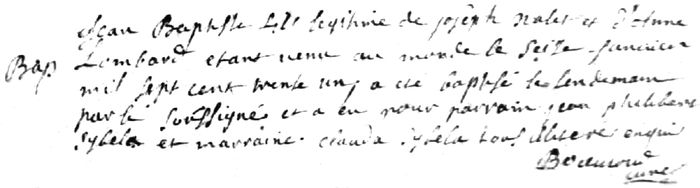 Jean Baptiste fils legitime de joseph nalet et d'Anne
Bap Lombard etant venu au monde le seise janvier
mil sept cent trente un, a eté baptisé le lendemain
par le soussigné et a eu pour parrain jean philibert
sybela et marraine claudа sybela tous illiteré enqui
curé